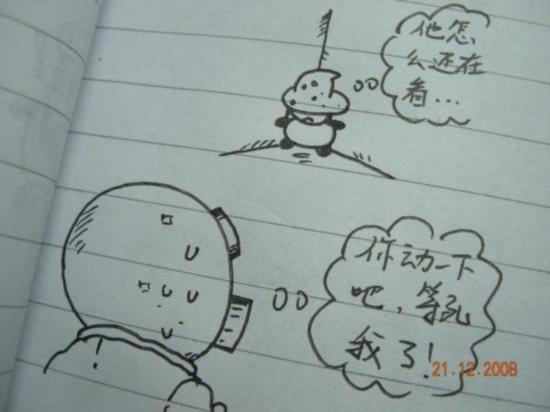 他怎
么还在
看…
你动一下
吧，等死
我了！
21.12.2008